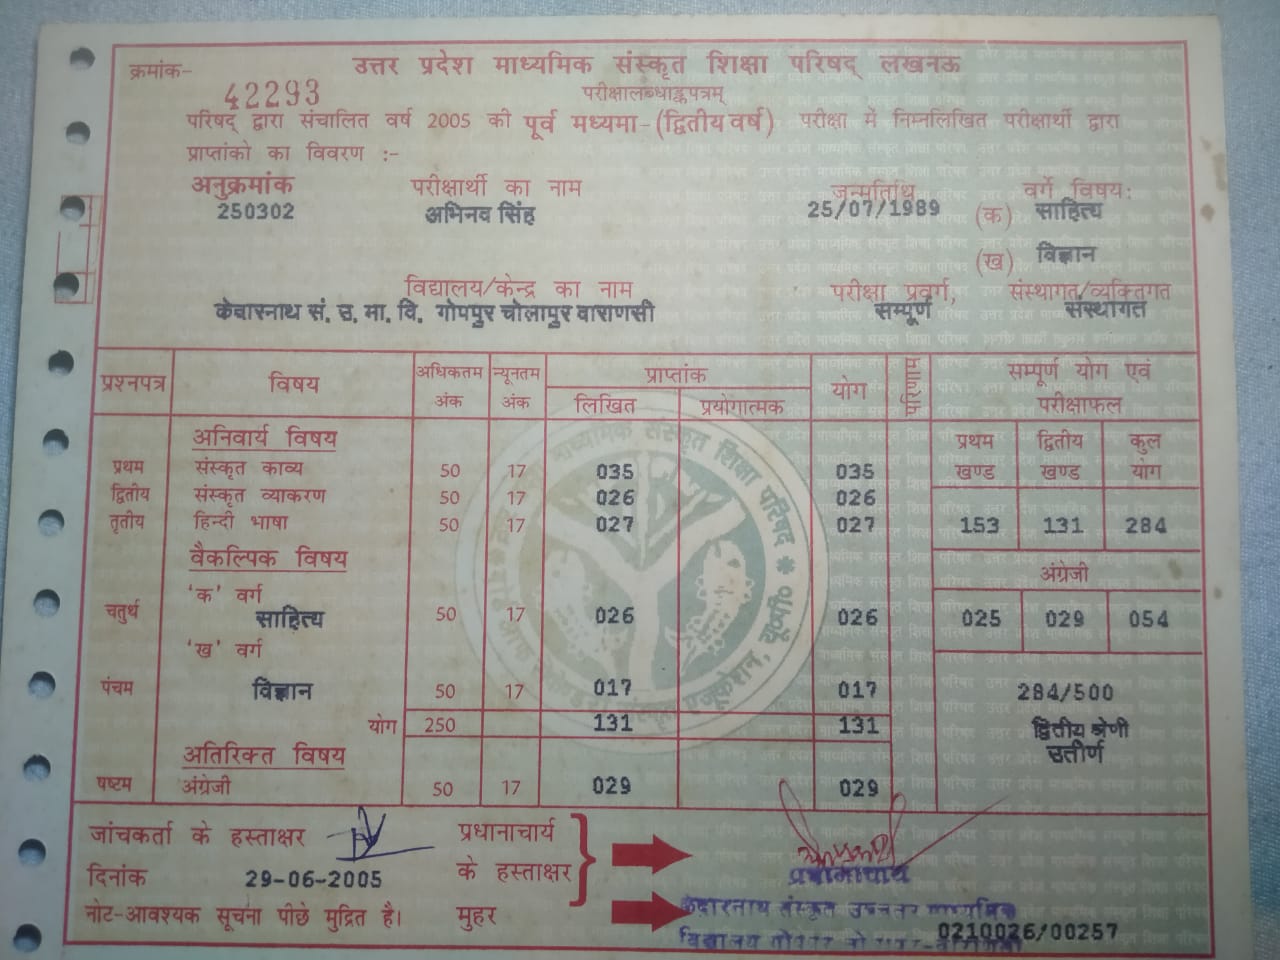 क्रमांक–
42293
उत्तर प्रदेश माध्यमिक संस्कृत शिक्षा परिषद् लखनऊ
परीक्षालब्धाङ्कपत्रम्
परिषद् द्वारा संचालित वर्ष 2005 की पूर्व मध्यमा-(द्वितीय वर्ष) परीक्षा में निम्नलिखित परीक्षार्थी द्वारा
प्राप्तांको का विवरण :-
अनुक्रमांक परीक्षार्थी का नाम जन्मतिथि वर्ग विषय:
250302 अभिनव सिंह 25/07/1989 (क) साहित्य
(ख) विज्ञान
विद्यालय/केन्द्र का नाम परीक्षा प्रवर्ग, संस्थागत/व्यक्तिगत
केदारनाथ सं. उ. मा. वि. गोपपुर चोलापुर वाराणसी सम्पूर्ण संस्थागत
प्रश्नपत्र विषय अधिकतम अंक न्यूनतम अंक प्राप्तांक योग परिणाम सम्पूर्ण योग एवं परीक्षाफल
लिखित प्रयोगात्मक
अनिवार्य विषय प्रथम खण्ड द्वितीय खण्ड कुल योग
प्रथम संस्कृत काव्य 50 17 035 035
द्वितीय संस्कृत व्याकरण 50 17 026 026
तृतीय हिन्दी भाषा 50 17 027 027 153 131 284
वैकल्पिक विषय
अंग्रेजी
'क' वर्ग
चतुर्थ साहित्य 50 17 026 026 025 029 054
'ख' वर्ग
पंचम विज्ञान 50 17 017 017 284/500
योग 250 131 131 द्वितीय श्रेणी
अतिरिक्त विषय उतीर्ण
षष्टम अंग्रेजी 50 17 029 029
जांचकर्ता के हस्ताक्षर प्रधानाचार्य
के हस्ताक्षर
प्रधानाचार्य
दिनांक 29-06-2005
नोट-आवश्यक सूचना पीछे मुद्रित है। मुहर
केदारनाथ संस्कृत उच्चतर माध्यमिक
विद्यालय
0210026/00257